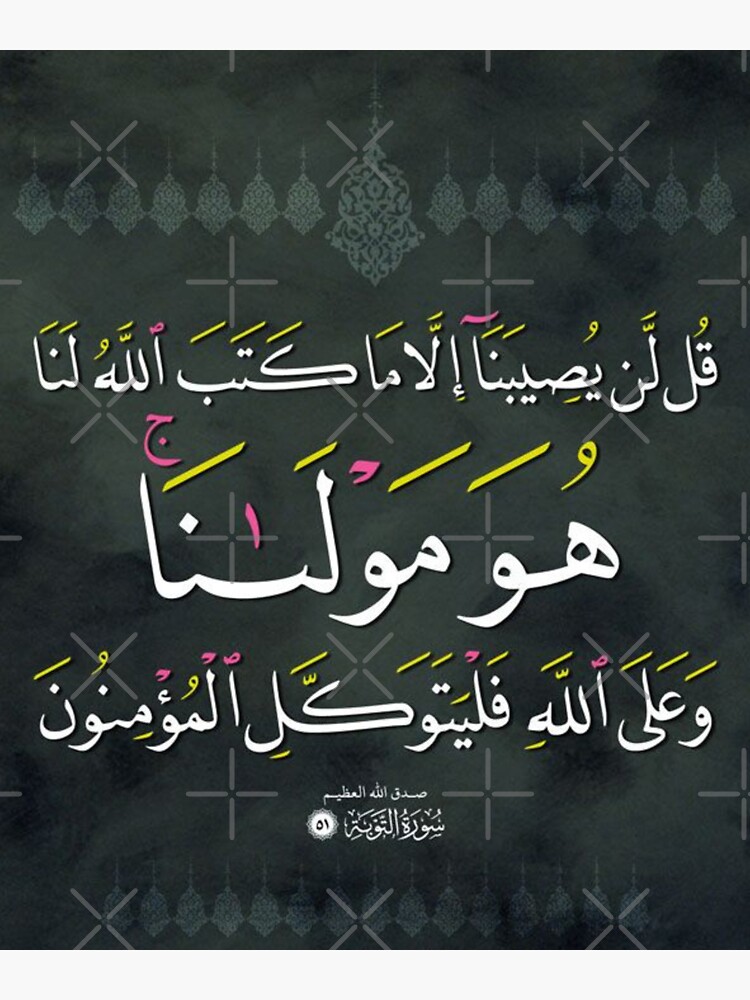 قُل لَّن يُصِيبَنَآ إِلَّا مَا كَتَبَ ٱللَّهُ لَنَا
هُوَ مَوْلَىٰنَا ۚ
وَعَلَى ٱللَّهِ فَلْيَتَوَكَّلِ ٱلْمُؤْمِنُونَ
صدق الله العظيم
سُورَةُ التَّوْبَةِ ٥١